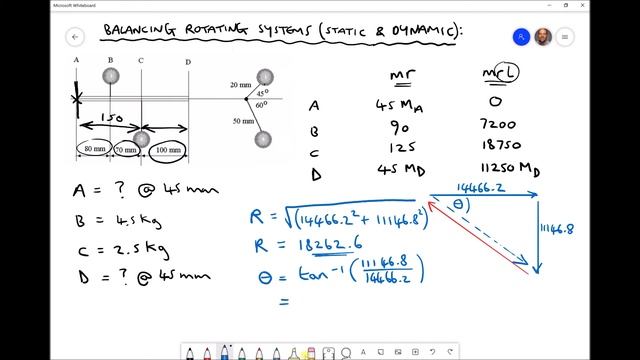 Microsoft Whiteboard
BALANCING ROTATING SYSTEMS (STATIC & DYNAMIC):
A B C D
20 mm
45°
60°
50 mm
150
80 mm 70 mm 100 mm
mr mrL
A 45 MA 0
B 90 7200
C 125 18750
D 45 MD 11250 MD
A = ? @ 45mm
B = 4.5kg
C = 2.5kg
D = ? @ 45mm
R = √(14466.2² + 11146.8²)
R = 18262.6
θ = tan⁻¹ (11146.8/14466.2)
=
14466.2
θ
11146.8